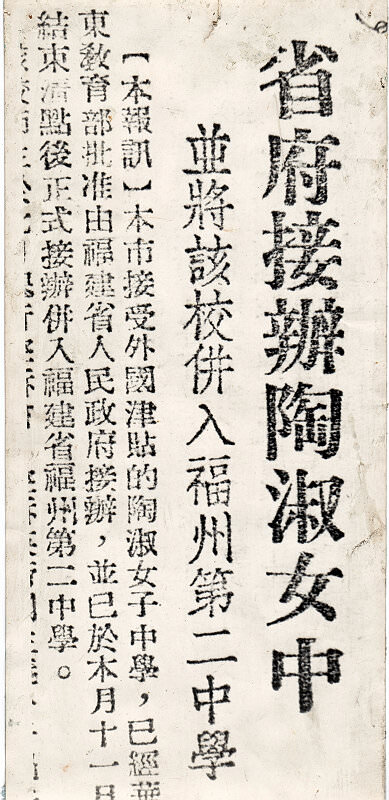 省府接辦陶淑女中
並將該校併入福州第二中學
【本報訊】本市接受外國津貼的陶淑女子中學，已經華
東敎育部批准由福建省人民政府接辦，並已於本月十一日
結束淸點後正式接辦併入福建省福州第二中學。